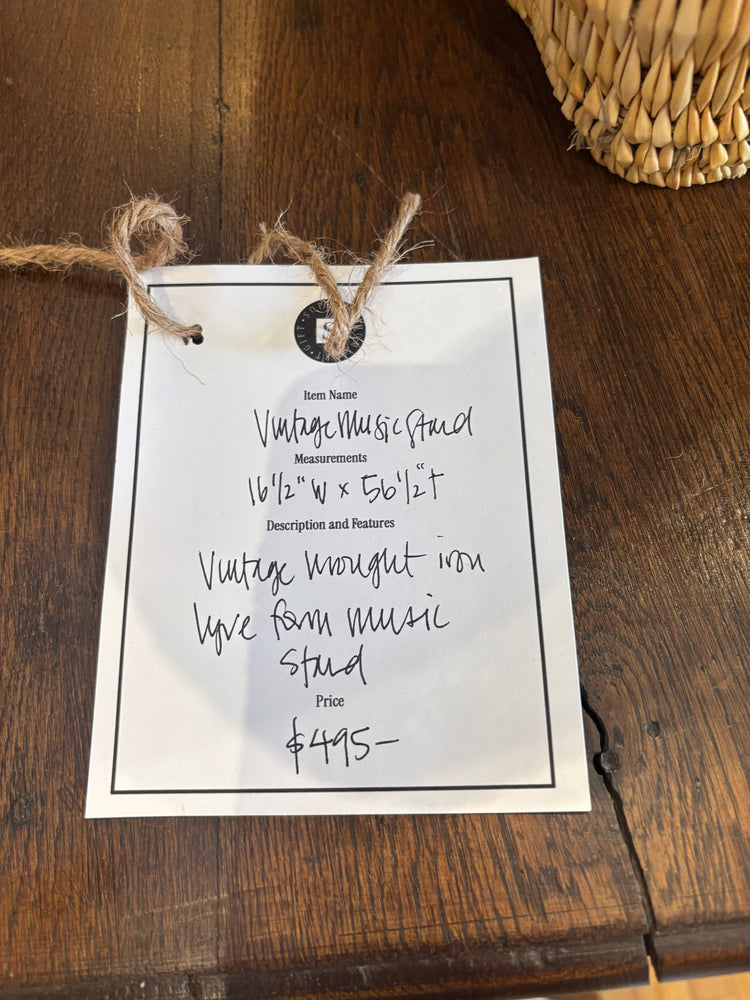 Item Name
Vintage Music Stand
Measurements
16 1/2" W x 56 1/2" T
Description and Features
Vintage wrought iron
lyre form music
stand
Price
$495—